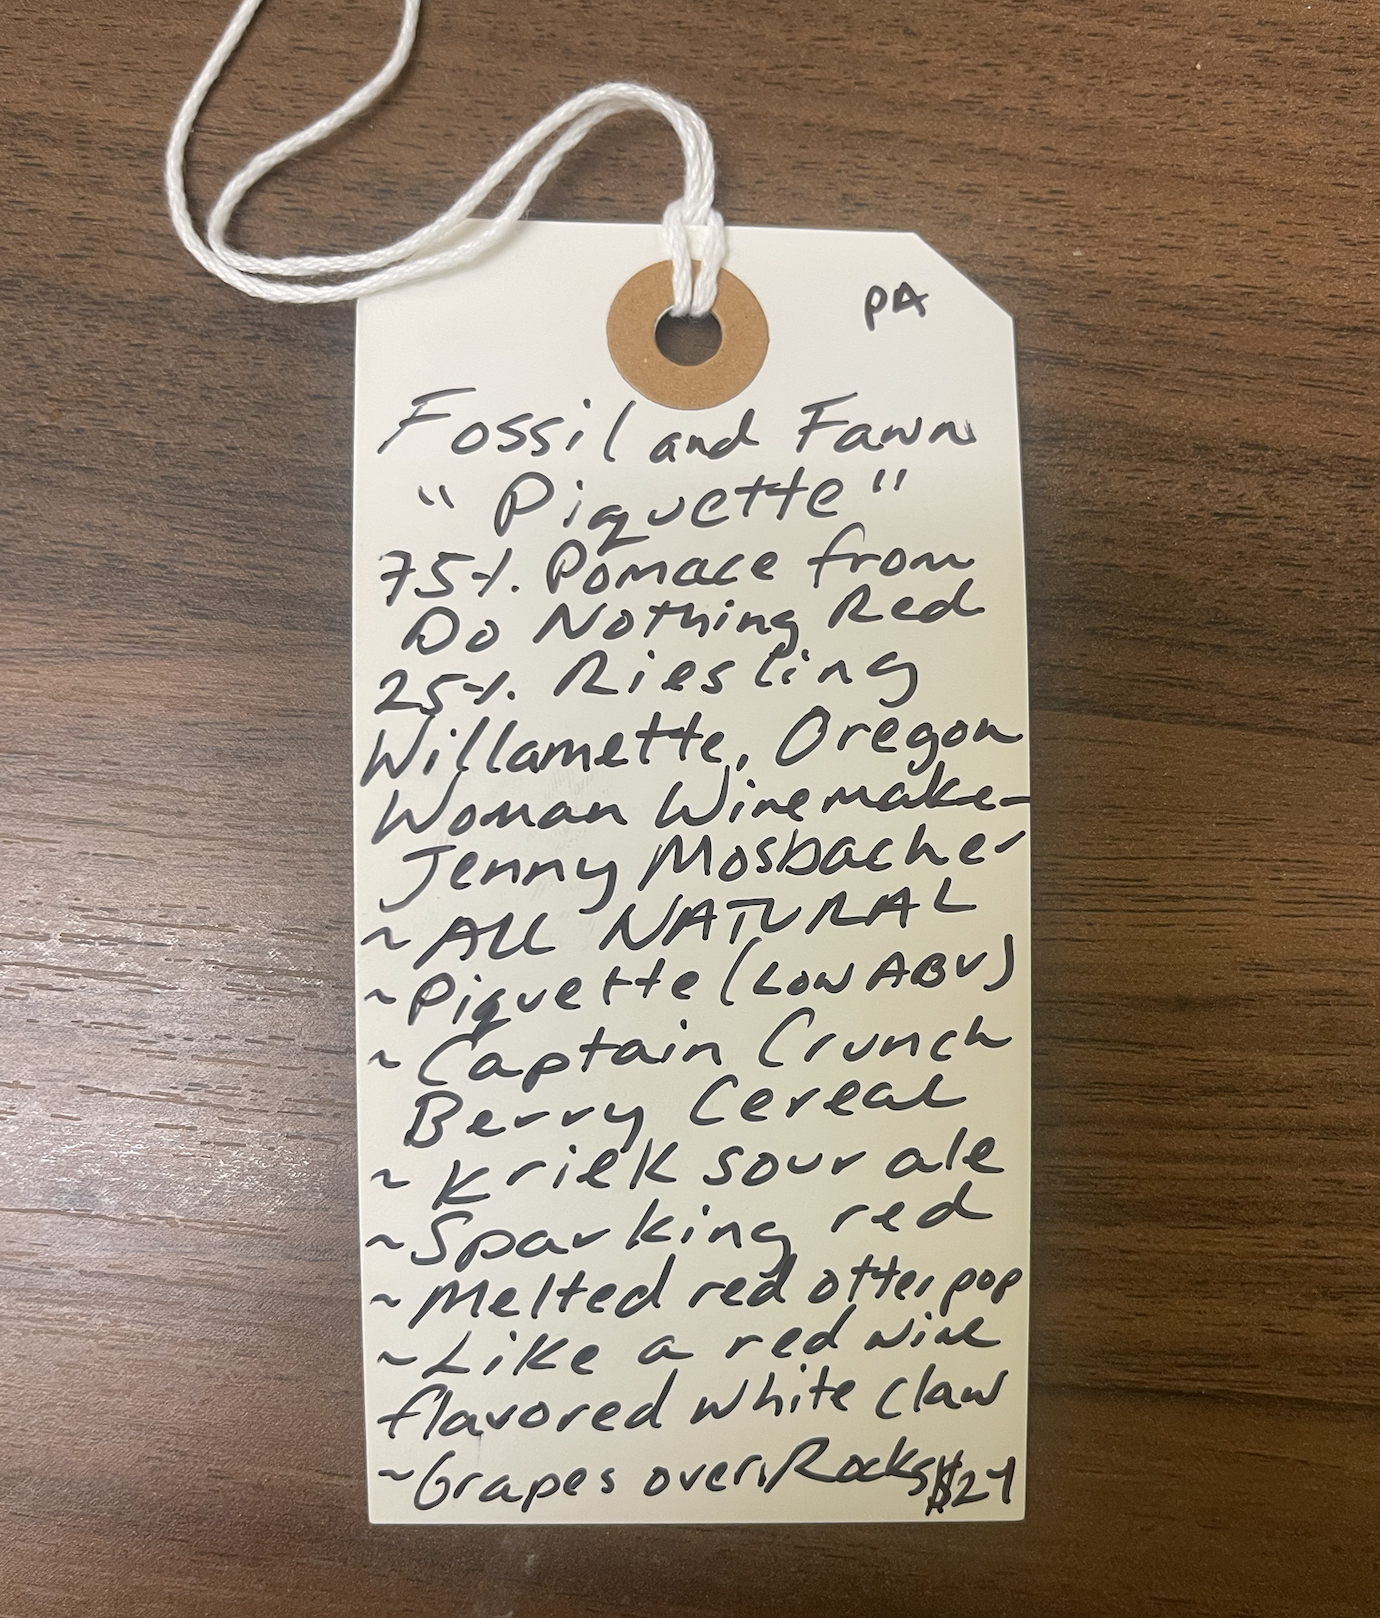 PA
Fossil and Fawn
"Piquette"
75% Pomace from
Do Nothing Red
25% Riesling
Willamette, Oregon
Woman Winemaker
Jenny Mosbacher
~ ALL NATURAL
~ Piquette (LOW ABV)
~ Captain Crunch
Berry Cereal
~ Kriek sour ale
~ Sparking red
~ Melted red otter pop
~ Like a red wine
flavored white claw
~ Grapes over Rocks $24